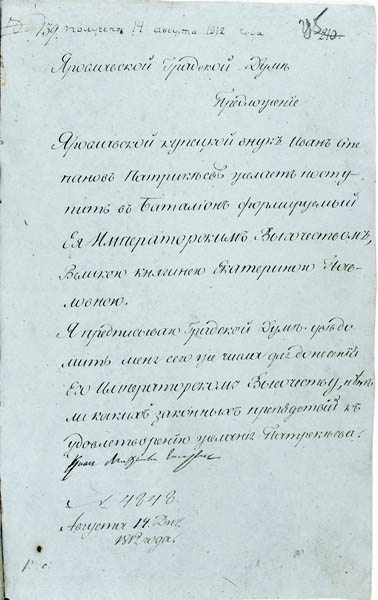 № 159. получено 14 августа 1812 года
Ярославской Градской Думѣ
Предложенiе
Ярославской купецкой внукъ Иванъ Сте
пановъ Патрикѣевъ желаетъ посту
пить въ Баталiонъ формируемый
Ея Императорскимъ Высочествомъ,
Великою княгинею Екатериною Пав-
ловною.
Я предписываю Градской Думѣ увѣдо
мить меня сего же числа для донесенiя
Ея Императорскому Высочеству, нѣтъ
ли какихъ законныхъ препятствiй къ
удовлетворенiю желанiя Патрекѣева.
№ 4848.
Августа 14. Дня
1812 года.